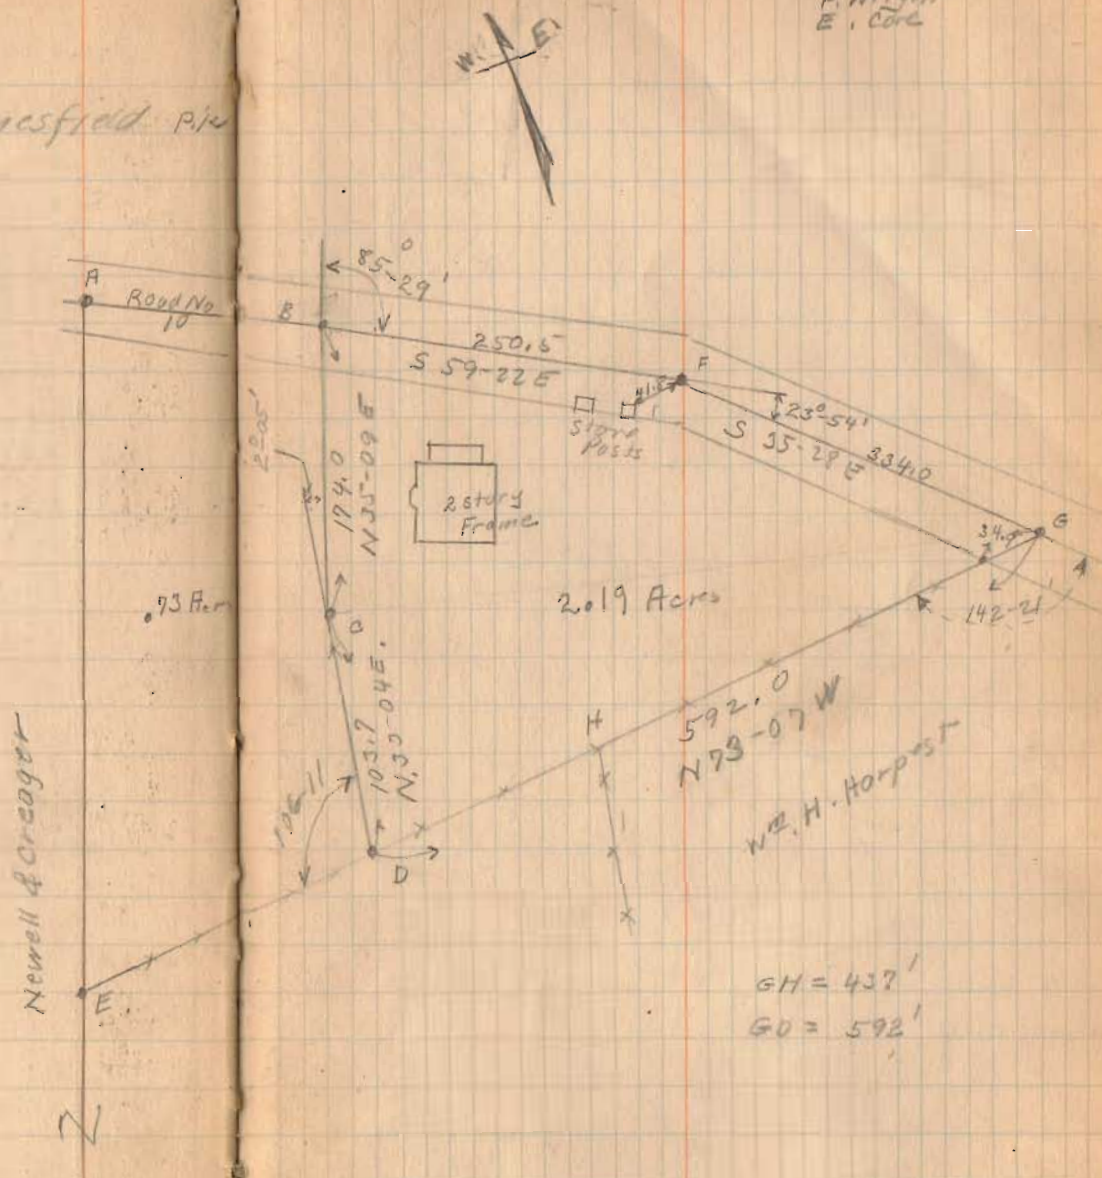 E. Core
W. E.
Pike
A
Road No
10
B
85°-29'
250.5
S 59-22 E
F
41.5
Stone
Posts
23°-54'
S 35-28 E
334.0
G
34.9
A
142-21
2°-05'
174.0
N 35-09 E
2 story
Frame
.73 Acre
C
2.19 Acres
103.7
N.33-04 E.
106-11
D
H
592.0
N 73-07 W
Wm. H. Harpest
Newell & Creager
E
GH = 437'
GD = 592'